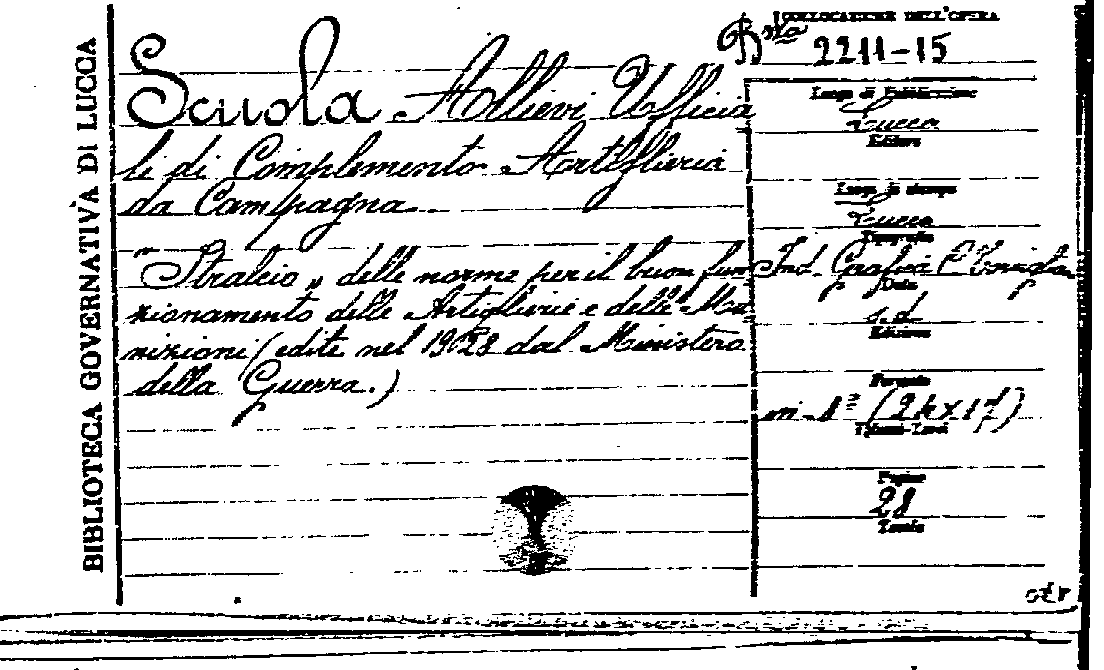 BIBLIOTECA GOVERNATIVA DI LUCCA
COLLOCAZIONE DELL'OPERA
Bta 2211-15
Scuola Allievi Ufficia
li di Complemento Artiglieria
da Campagna
"Stralcio„ delle norme per il buon fun
zionamento delle Artiglierie e delle Mu-
nizioni (edite nel 1928 dal Ministero
della Guerra.)
Luogo di Pubblicazione
Lucca
Editore
Luogo di stampa
Lucca
Tipografia
Ind. Grafica
Data
s.d.
Edizione
Formato
in-8° (24x17)
Pagine
28
Tavole